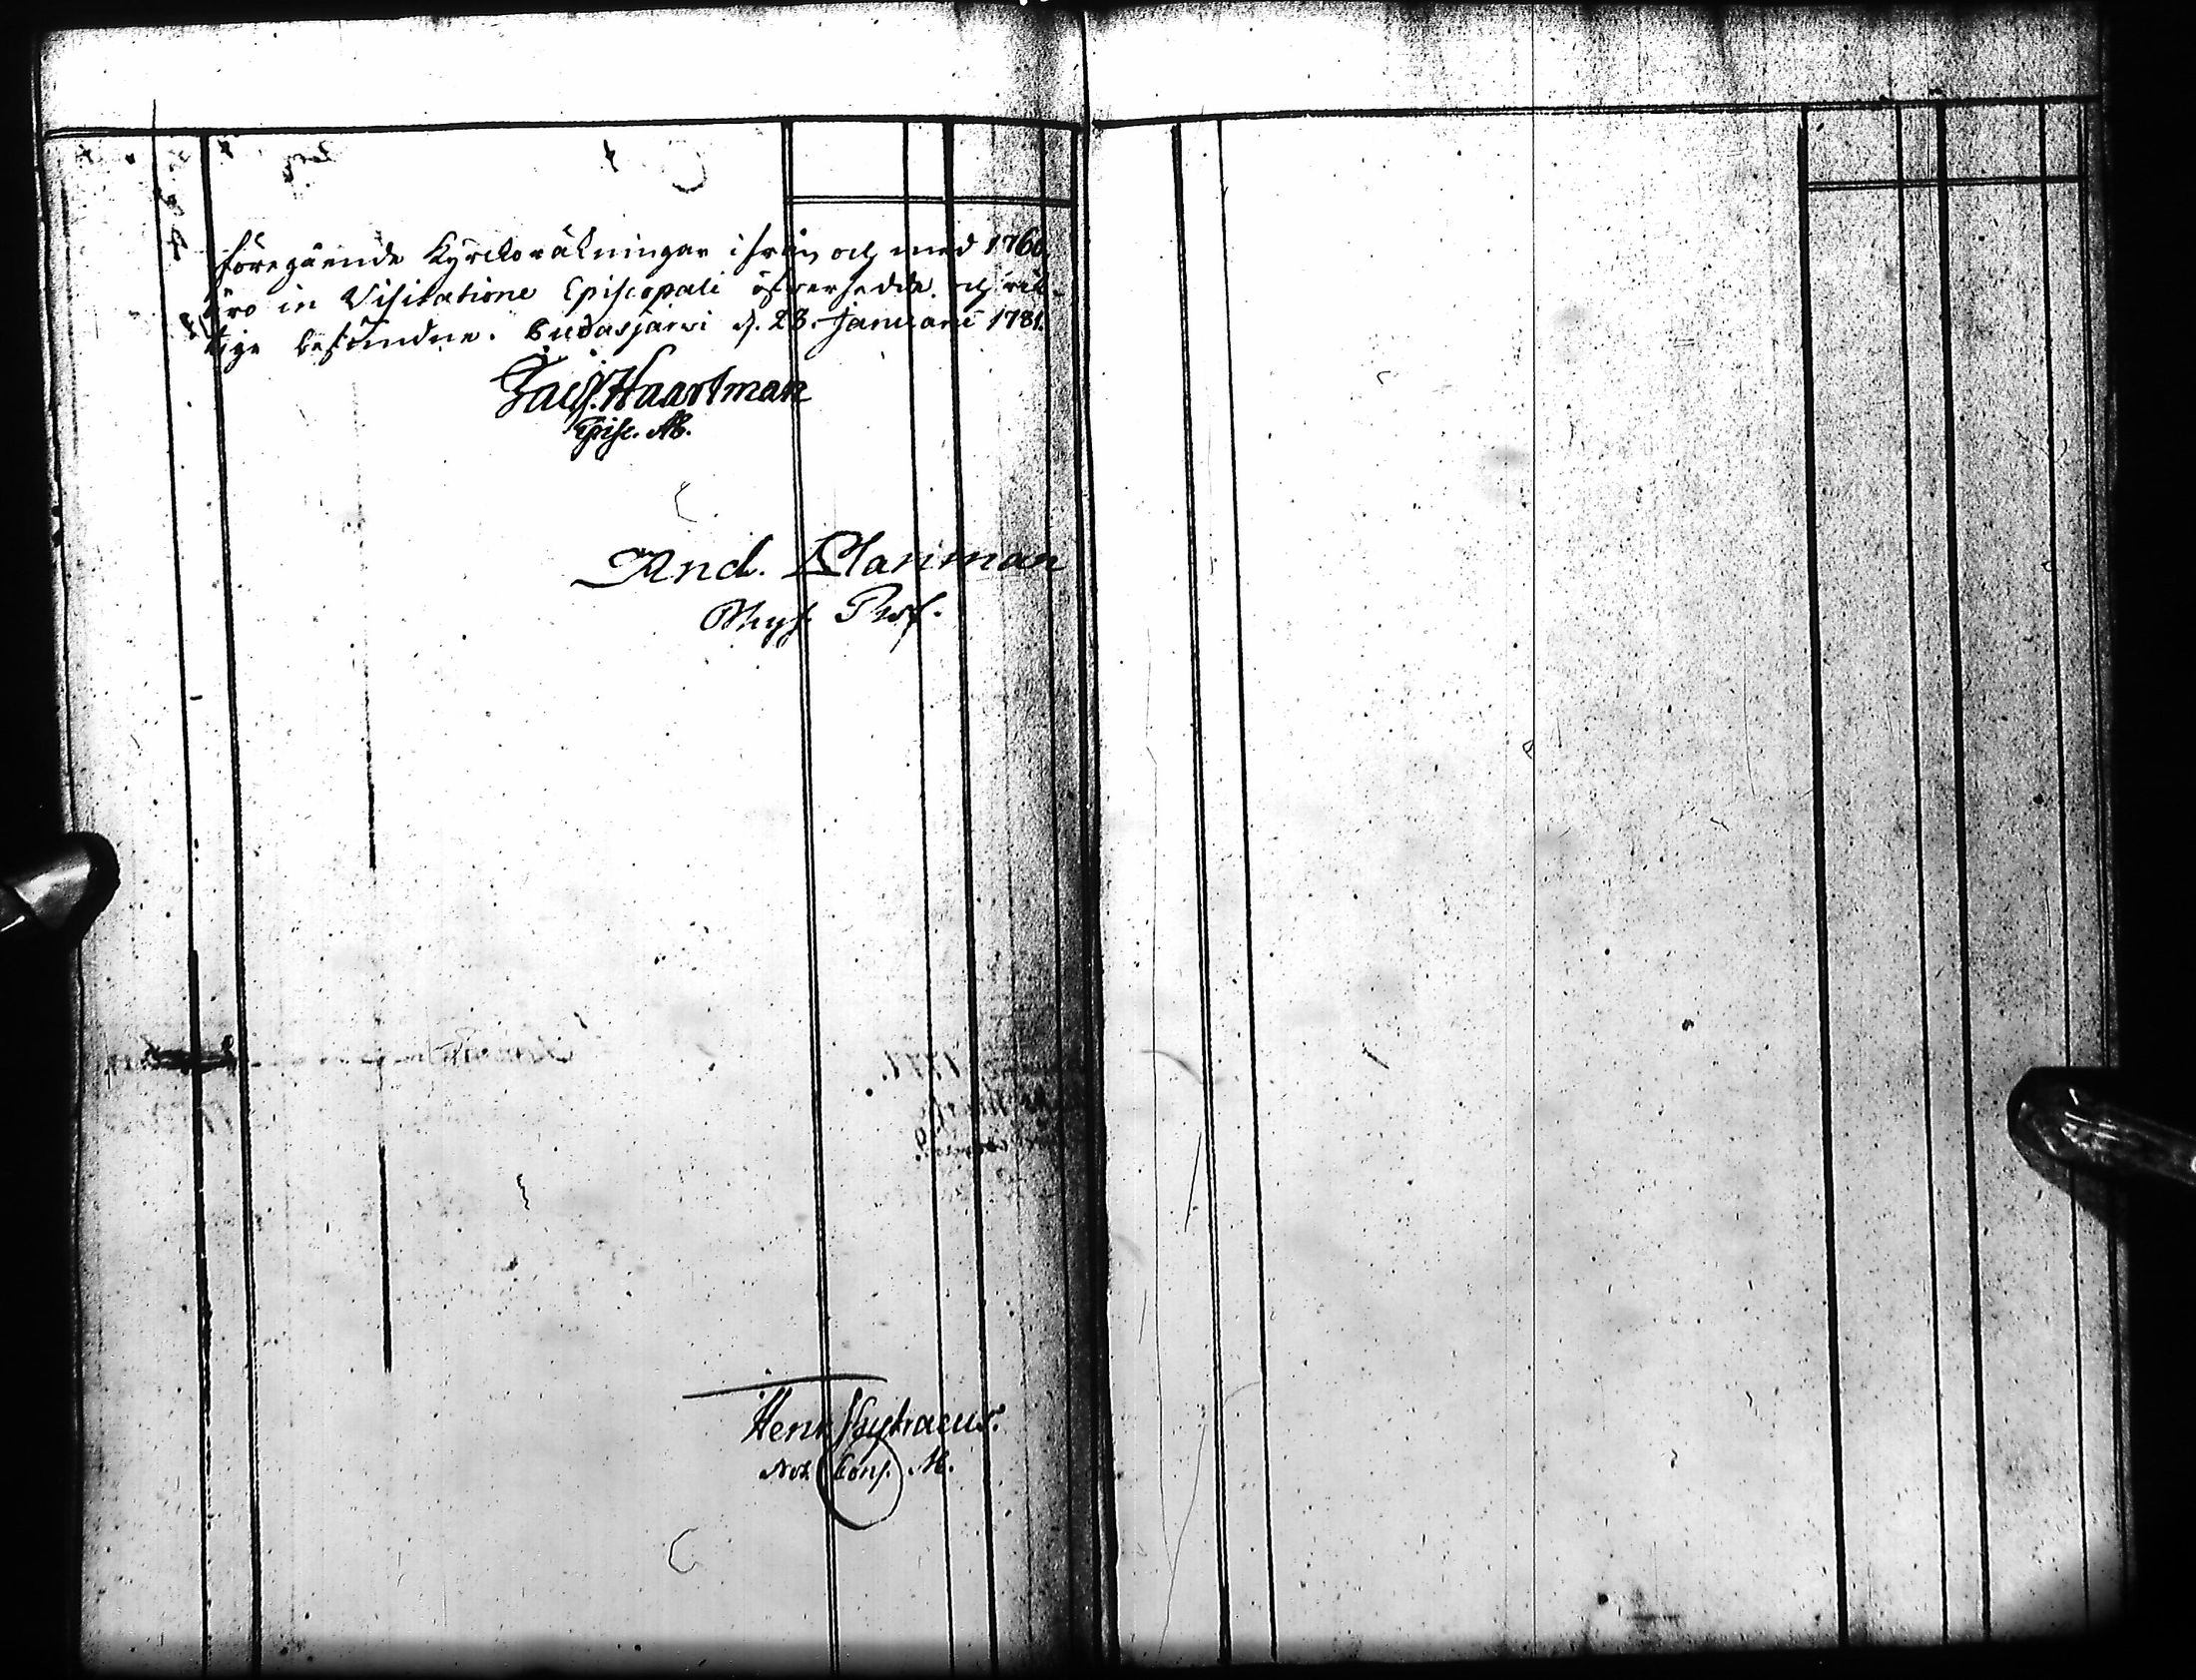 Föregående Kyrckoräkningar ifrån och med 1760,
äro in Visitatione Episcopali öfversedda och rik-
tige befundne. Pudasjärvi d. 28. Januarii 1781.
Jac. Haartman
Episc. Ab.
And. Planman
Phys. Prof.
Henr.
Not. Cons. Ab.